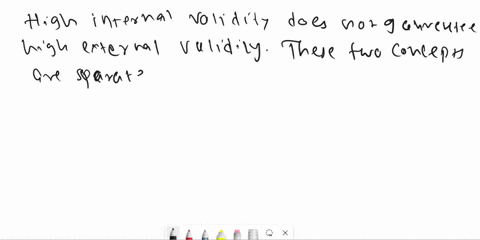 High internal validity does not gaurentee
high external validity. These two concepts
are sparat